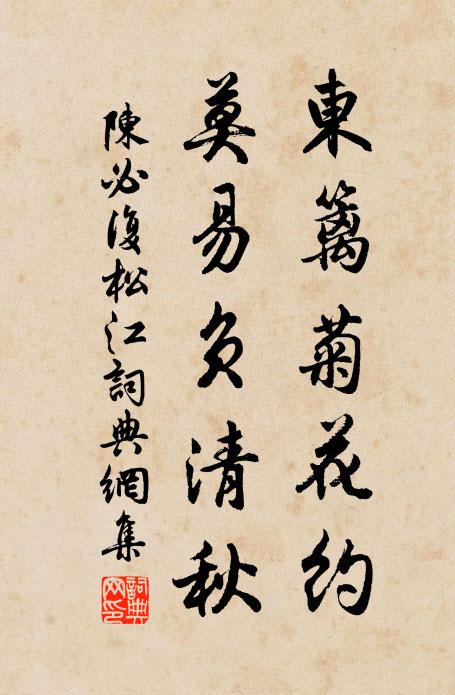 東籬菊花約
莫易負清秋
陳必復松江詞典網集
詞典網印